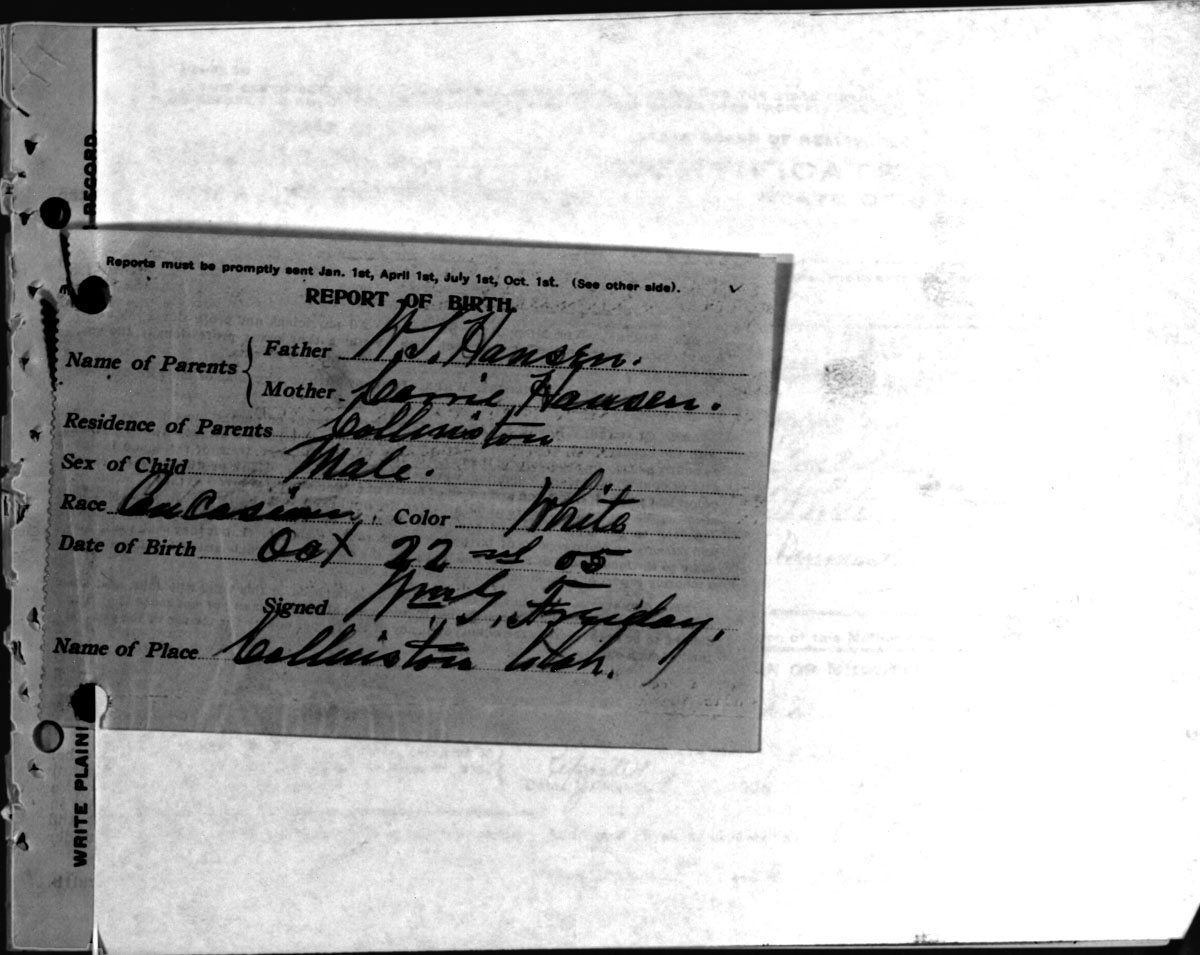 RECORD
Reports must be promptly sent Jan. 1st, April 1st, July 1st, Oct. 1st. (See other side).
REPORT OF BIRTH.
Name of Parents { Father W. S. Hansen.
Mother Carrie Hansen.
Residence of Parents Collinston
Sex of Child Male.
Race Caucasian, Color White
Date of Birth Oct 22nd 05
Signed Wm G. Freiday,
Name of Place Collinston Utah.
WRITE PLAIN